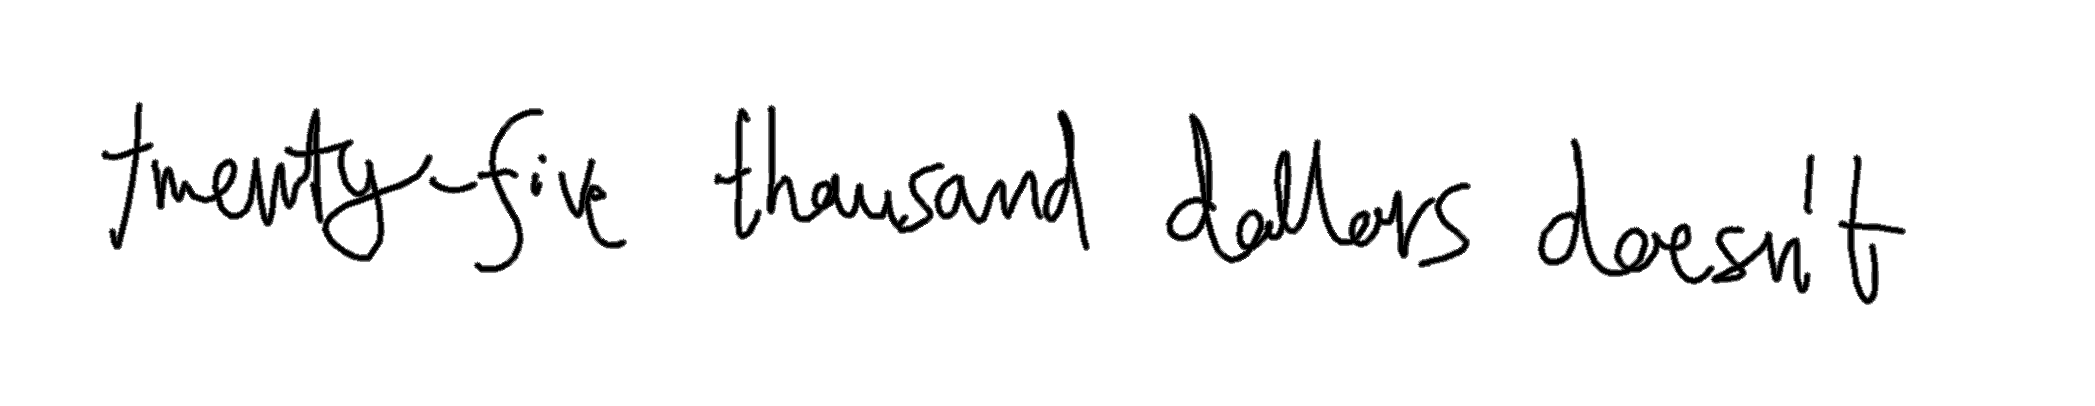 twenty-five thousand dollars doesn't